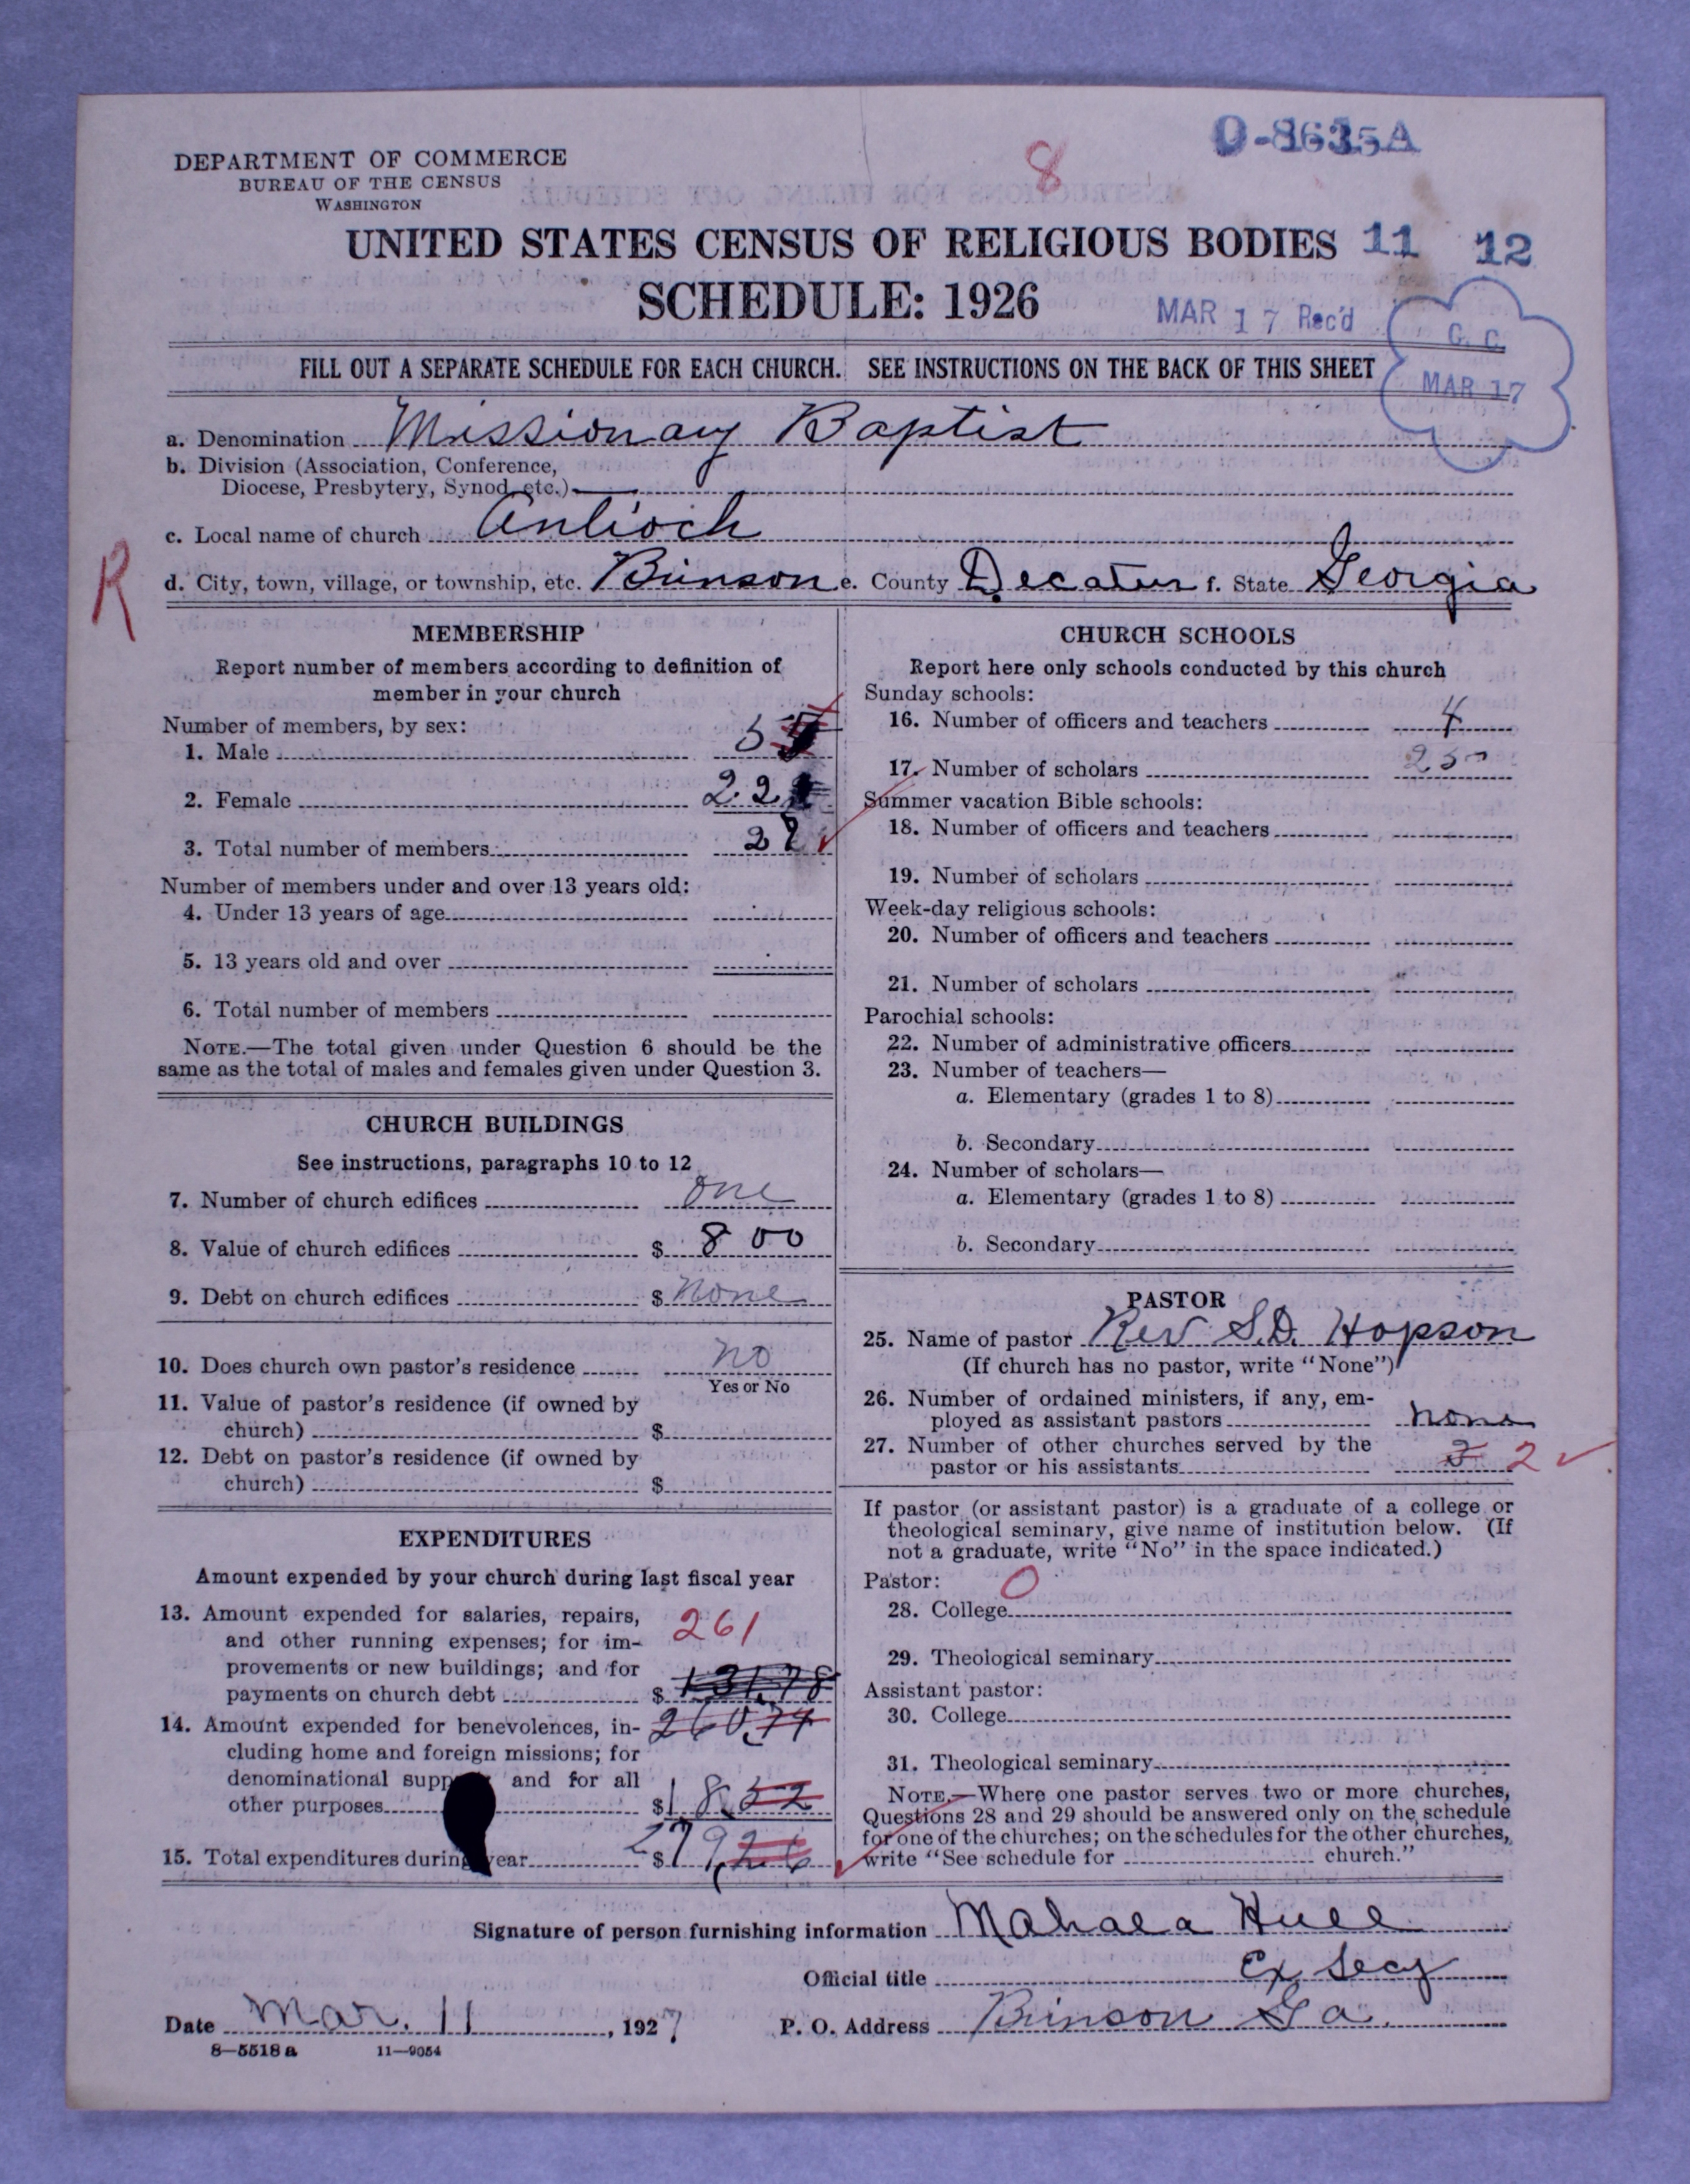 DEPARTMENT OF COMMERCE
BUREAU OF THE CENSUS
WASHINGTON
8
O-8635A
UNITED STATES CENSUS OF RELIGIOUS BODIES 11 12
SCHEDULE: 1926
MAR 17 Rec'd
G. C.
MAR 17
FILL OUT A SEPARATE SCHEDULE FOR EACH CHURCH. SEE INSTRUCTIONS ON THE BACK OF THIS SHEET
a. Denomination Missionary Baptist
b. Division (Association, Conference,
Diocese, Presbytery, Synod, etc.)
c. Local name of church Antioch
R
d. City, town, village, or township, etc. Brinson e. County Decatur f. State Georgia
MEMBERSHIP
Report number of members according to definition of
member in your church
Number of members, by sex:
1. Male 5
2. Female 22
3. Total number of members 27
Number of members under and over 13 years old:
4. Under 13 years of age
5. 13 years old and over
6. Total number of members
NOTE.—The total given under Question 6 should be the
same as the total of males and females given under Question 3.
CHURCH BUILDINGS
See instructions, paragraphs 10 to 12
7. Number of church edifices one
8. Value of church edifices $ 800
9. Debt on church edifices $ none
10. Does church own pastor's residence no
Yes or No
11. Value of pastor's residence (if owned by
church) $
12. Debt on pastor's residence (if owned by
church) $
EXPENDITURES
Amount expended by your church during last fiscal year
13. Amount expended for salaries, repairs,
and other running expenses; for im-
provements or new buildings; and for
payments on church debt $ 131.78
261
260.74
14. Amount expended for benevolences, in-
cluding home and foreign missions; for
denominational supp and for all
other purposes $ 18.52
15. Total expenditures during year $ 279.26
CHURCH SCHOOLS
Report here only schools conducted by this church
Sunday schools:
16. Number of officers and teachers 4
17. Number of scholars 25
Summer vacation Bible schools:
18. Number of officers and teachers
19. Number of scholars
Week-day religious schools:
20. Number of officers and teachers
21. Number of scholars
Parochial schools:
22. Number of administrative officers
23. Number of teachers—
a. Elementary (grades 1 to 8)
b. Secondary
24. Number of scholars—
a. Elementary (grades 1 to 8)
b. Secondary
PASTOR
25. Name of pastor Rev S.D. Hopson
(If church has no pastor, write "None")
26. Number of ordained ministers, if any, em-
ployed as assistant pastors none
27. Number of other churches served by the
pastor or his assistants 2
If pastor (or assistant pastor) is a graduate of a college or
theological seminary, give name of institution below. (If
not a graduate, write "No" in the space indicated.)
Pastor: 0
28. College
29. Theological seminary
Assistant pastor:
30. College
31. Theological seminary
NOTE.—Where one pastor serves two or more churches,
Questions 28 and 29 should be answered only on the schedule
for one of the churches; on the schedules for the other churches,
write "See schedule for church."
Signature of person furnishing information Mahala Hull
Official title Ex Secy
Date Mar. 11, 1927 P. O. Address Brinson Ga.
8—5518 a 11—9054